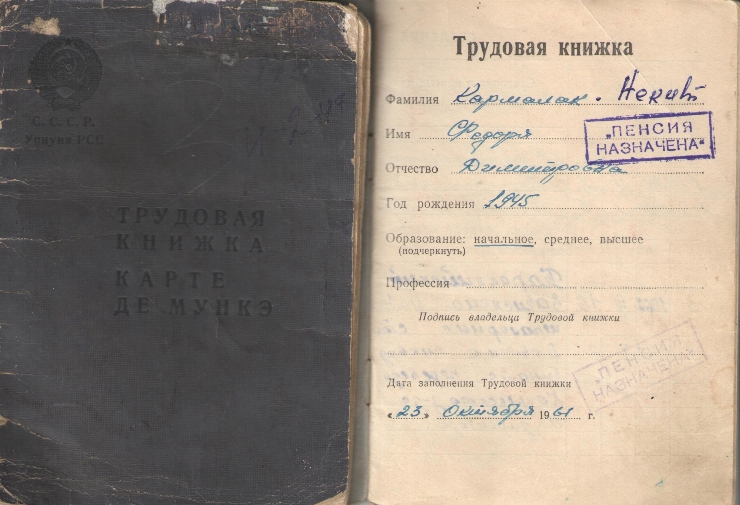 С. С. С. Р.
Униуня РСС
ТРУДОВАЯ
КНИЖКА
КАРТЕ
ДЕ МУНКЭ
Трудовая книжка
Фамилия Кармалак.
Имя Федора
„ПЕНСИЯ
НАЗНАЧЕНА“
Отчество Димитровна
Год рождения 1945
Образование: начальное, среднее, высшее
(подчеркнуть)
Профессия
Подпись владельца Трудовой книжки
„ПЕНСИЯ
НАЗНАЧЕНА“
Дата заполнения Трудовой книжки
„23“ октября 1961 г.